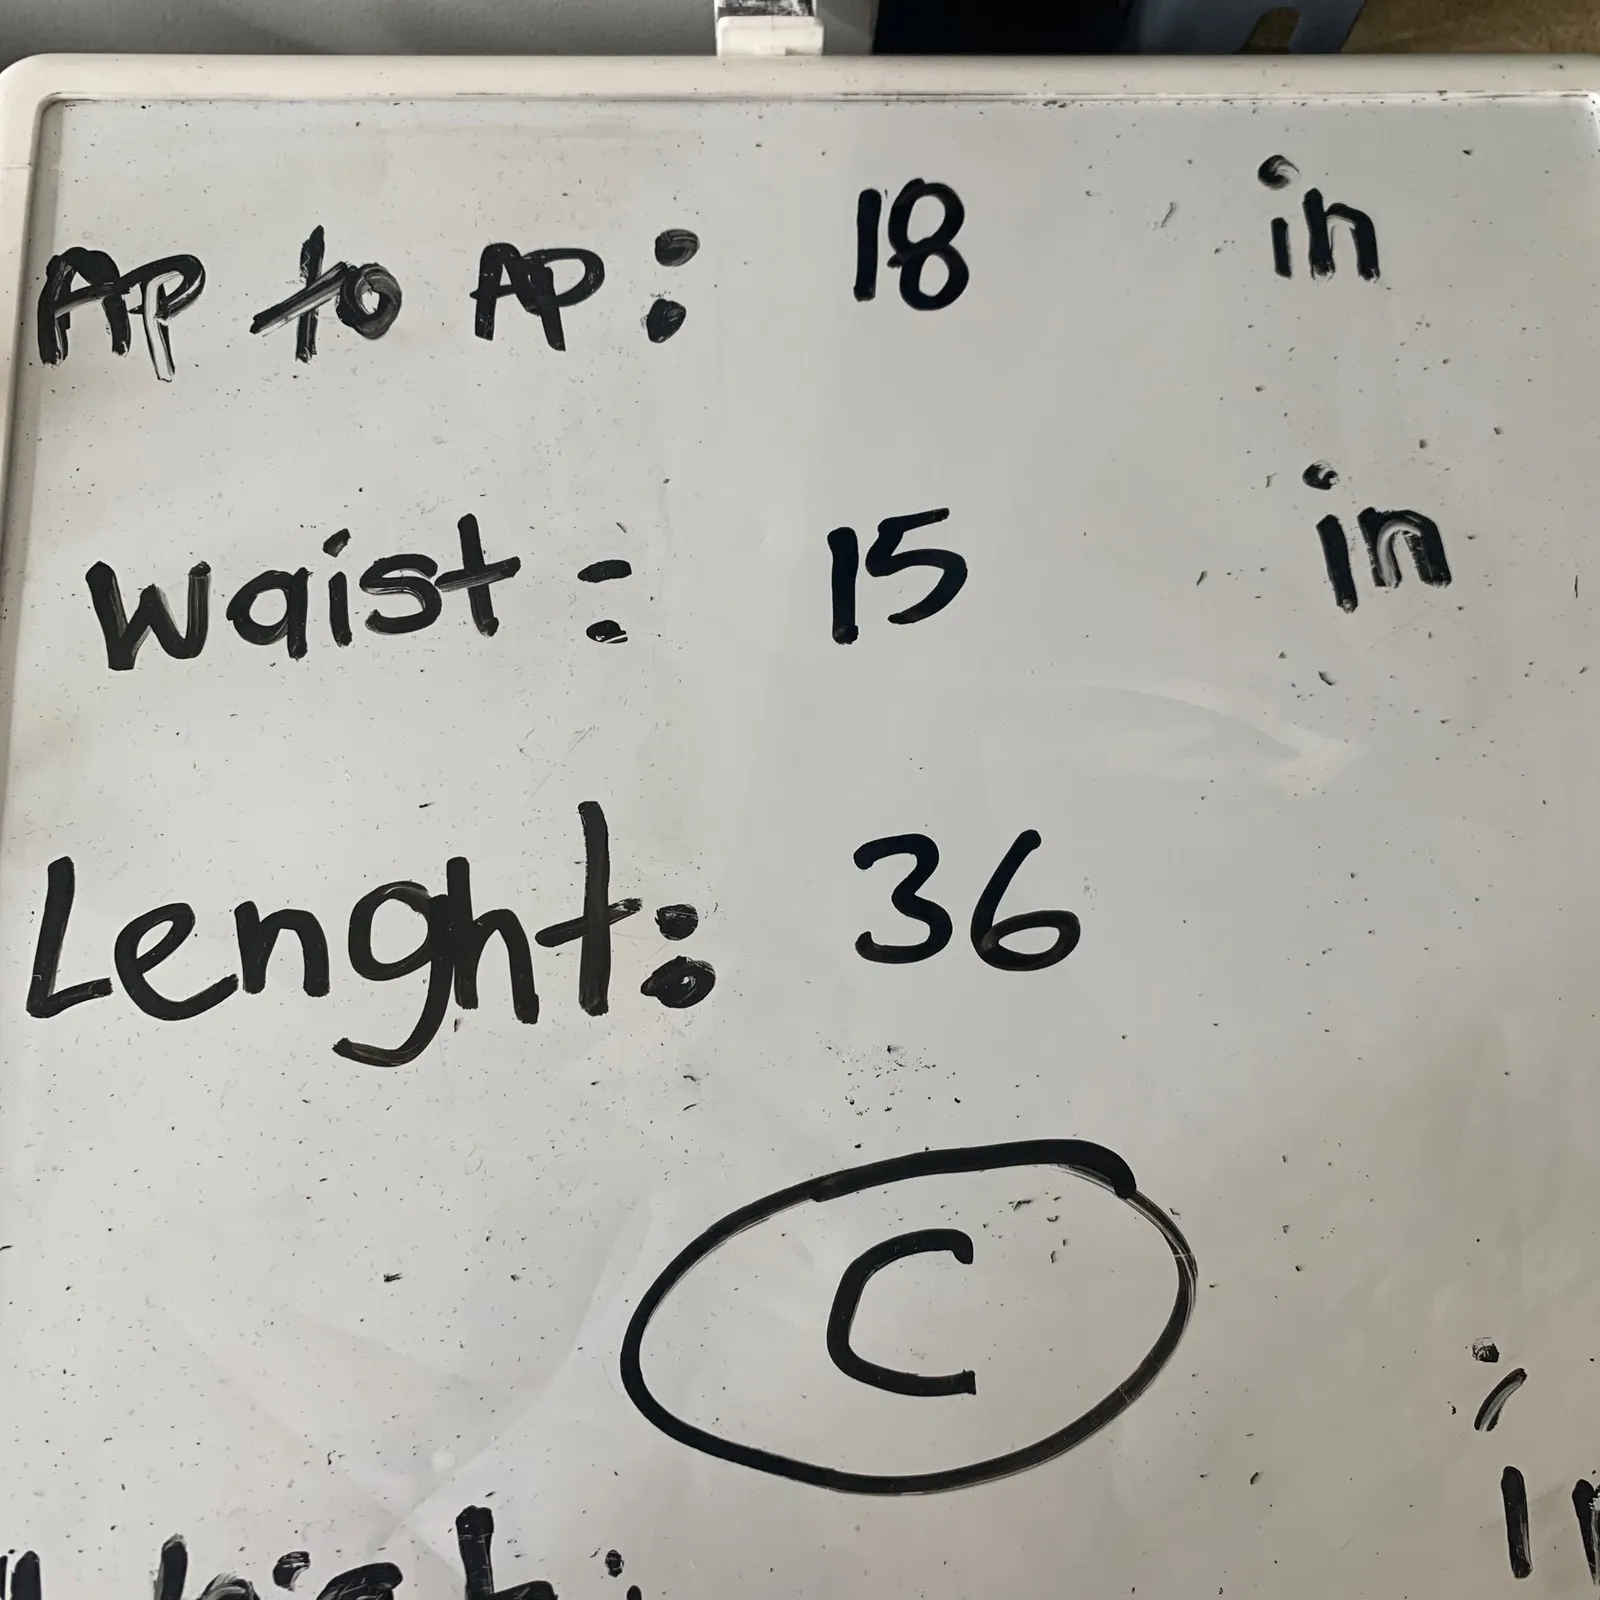 Ap to AP: 18 in
Waist: 15 in
Lenght: 36
C